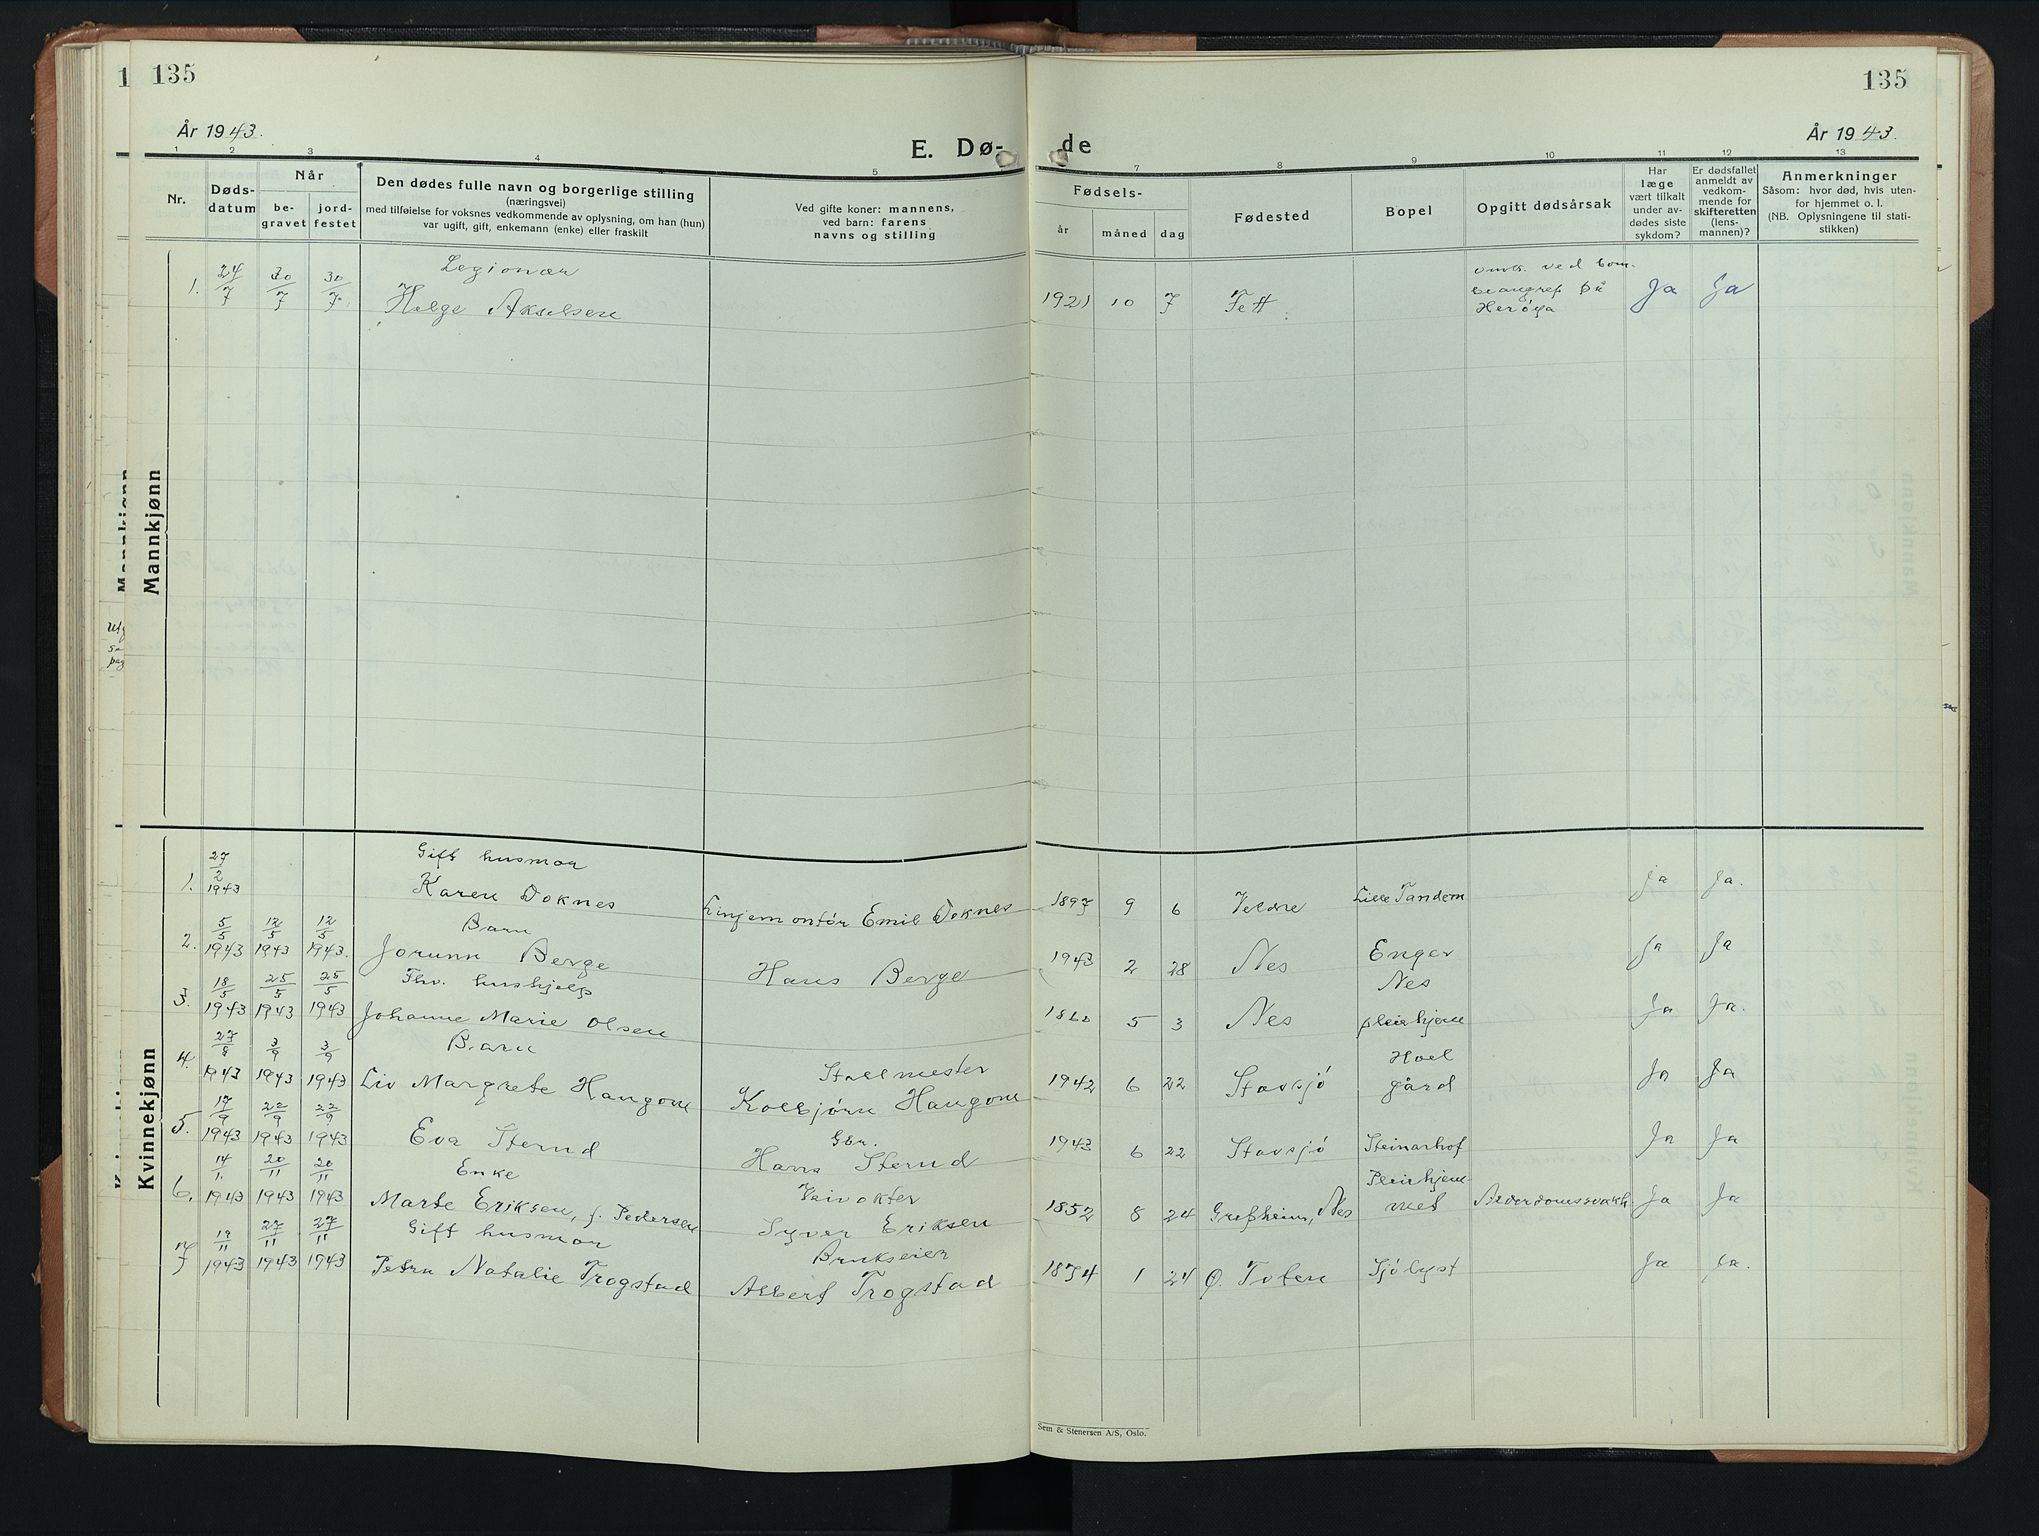 135
135
År 1943.
E. Dø-
de
År 1943.
1 2 3 4 5 7 8 9 10 11 12 13
Nr.
Døds-
datum
Når
be-
gravet
jord-
festet
Den dødes fulle navn og borgerlige stilling
(næringsvei)
med tilføielse for voksnes vedkommende av oplysning, om han (hun)
var ugift, gift, enkemann (enke) eller fraskilt
Ved gifte koner: mannens,
ved barn: farens
navns og stilling
Fødsels-
år
måned
dag
Fødested
Bopel
Opgitt dødsårsak
Har
læge
vært tilkalt
under av-
dødes siste
sykdom?
Er dødsfallet
anmeldt av
vedkom-
mende for
skifteretten
(lens-
mannen)?
Anmerkninger
Såsom: hvor død, hvis uten-
for hjemmet o. l.
(NB. Oplysningene til stati-
stikken)
Mannkjønn
Legionær
1. 24/7 30/7 30/7 Helge Akselsen 1921 10 7 Ja Ja
ved bom-
beangrep på
Herøya
Kvinnekjønn
Gift husmor
1. 27/2 1943 Karen Doknes Linjemontør Emil Doknes 1897 9 6 Veldre Lille Tandem Ja Ja.
Barn
2. 5/5 1943 12/5 1943 12/5 1943. Jorunn Berge Hans Berge 1943 2 28 Nes Enger Nes Ja Ja
Fhv. hushjelp
3. 18/5 1943 25/5 1943 25/5 1943 Johanne Marie Olsen 1860 5 3 Nes pleiehjem Ja Ja.
Barn
4. 27/8 1943 3/9 1943 3/9 1943 Liv Margrete Haugom Stallmester Kolbjørn Haugom 1942 6 22 Stavsjö Hoel gård Ja Ja
5. 17/9 1943 22/9 1943 22/9 1943 Eva Sterud Gbr. Hans Sterud 1943 6 22 Stavsjö Steinarhof Ja Ja
Enke
6. 14/11 1943 20/11 1943 20/11 1943 Marte Eriksen, f. Pedersen Veivokter Syver Eriksen 1852 8 24 Grefsheim, Nes Pleiehjemmet Alderdomssvakh Ja Ja
Gift husmor
7 19/11 1943 27/11 1943 27/11 1943 Petra Natalie Trogstad Brukseier Albert Trogstad 1874 1 24 Ø. Toten Sjölyst Ja Ja.
Sem & Stenersen A/S, Oslo.